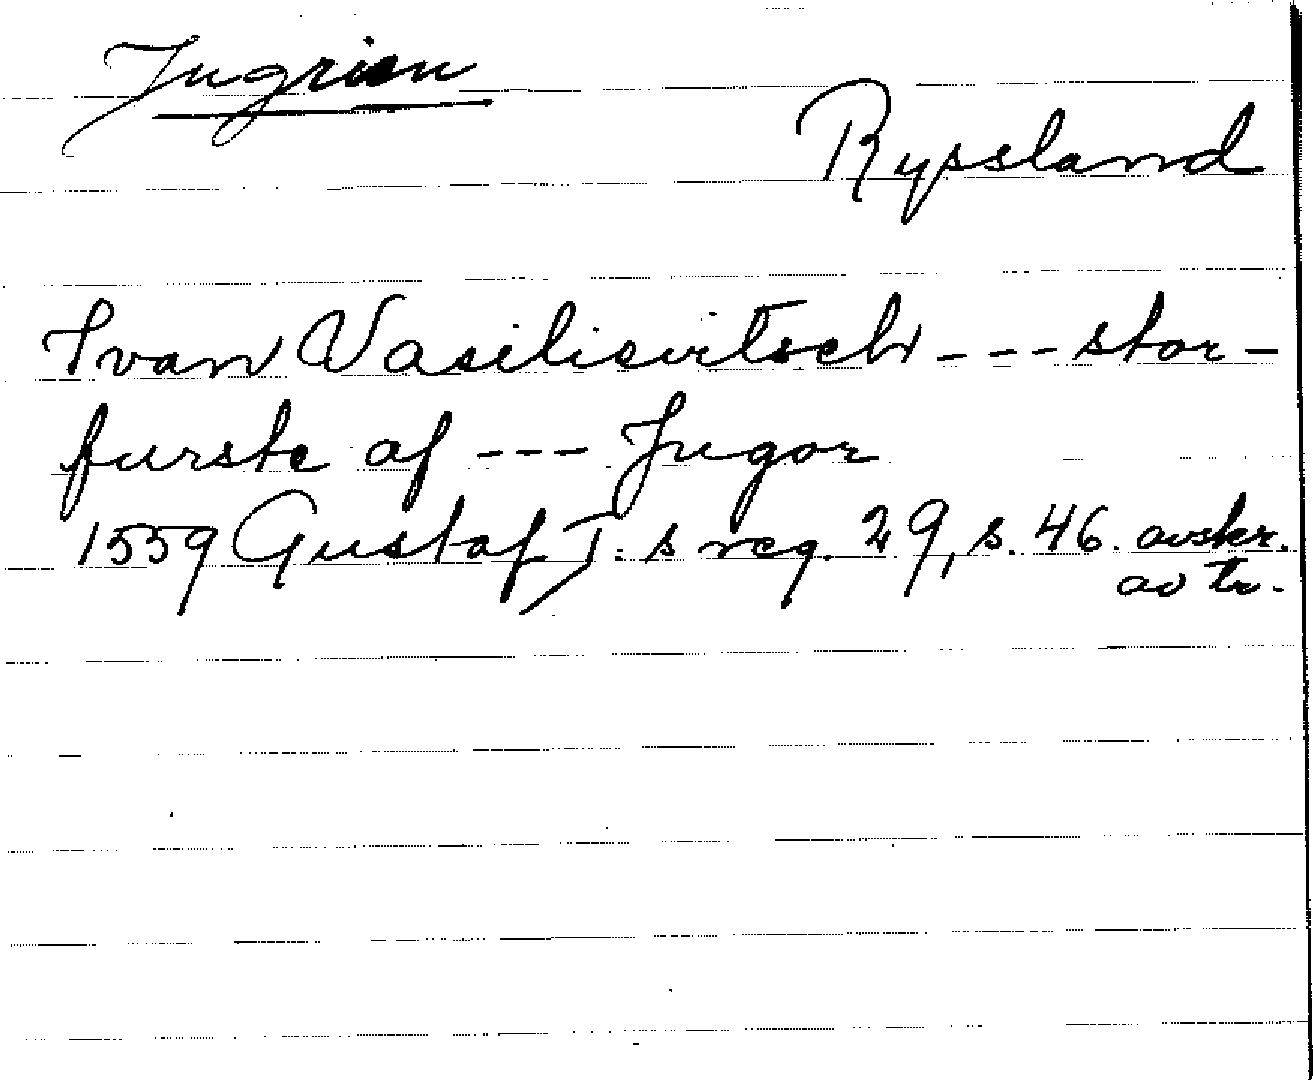 Jugrien
Ryssland
Ivan Vasilievitsch --- stor-
furste af --- Jugor
1559 Gustaf I:s reg. 29, s. 46. avskr.
av tr.